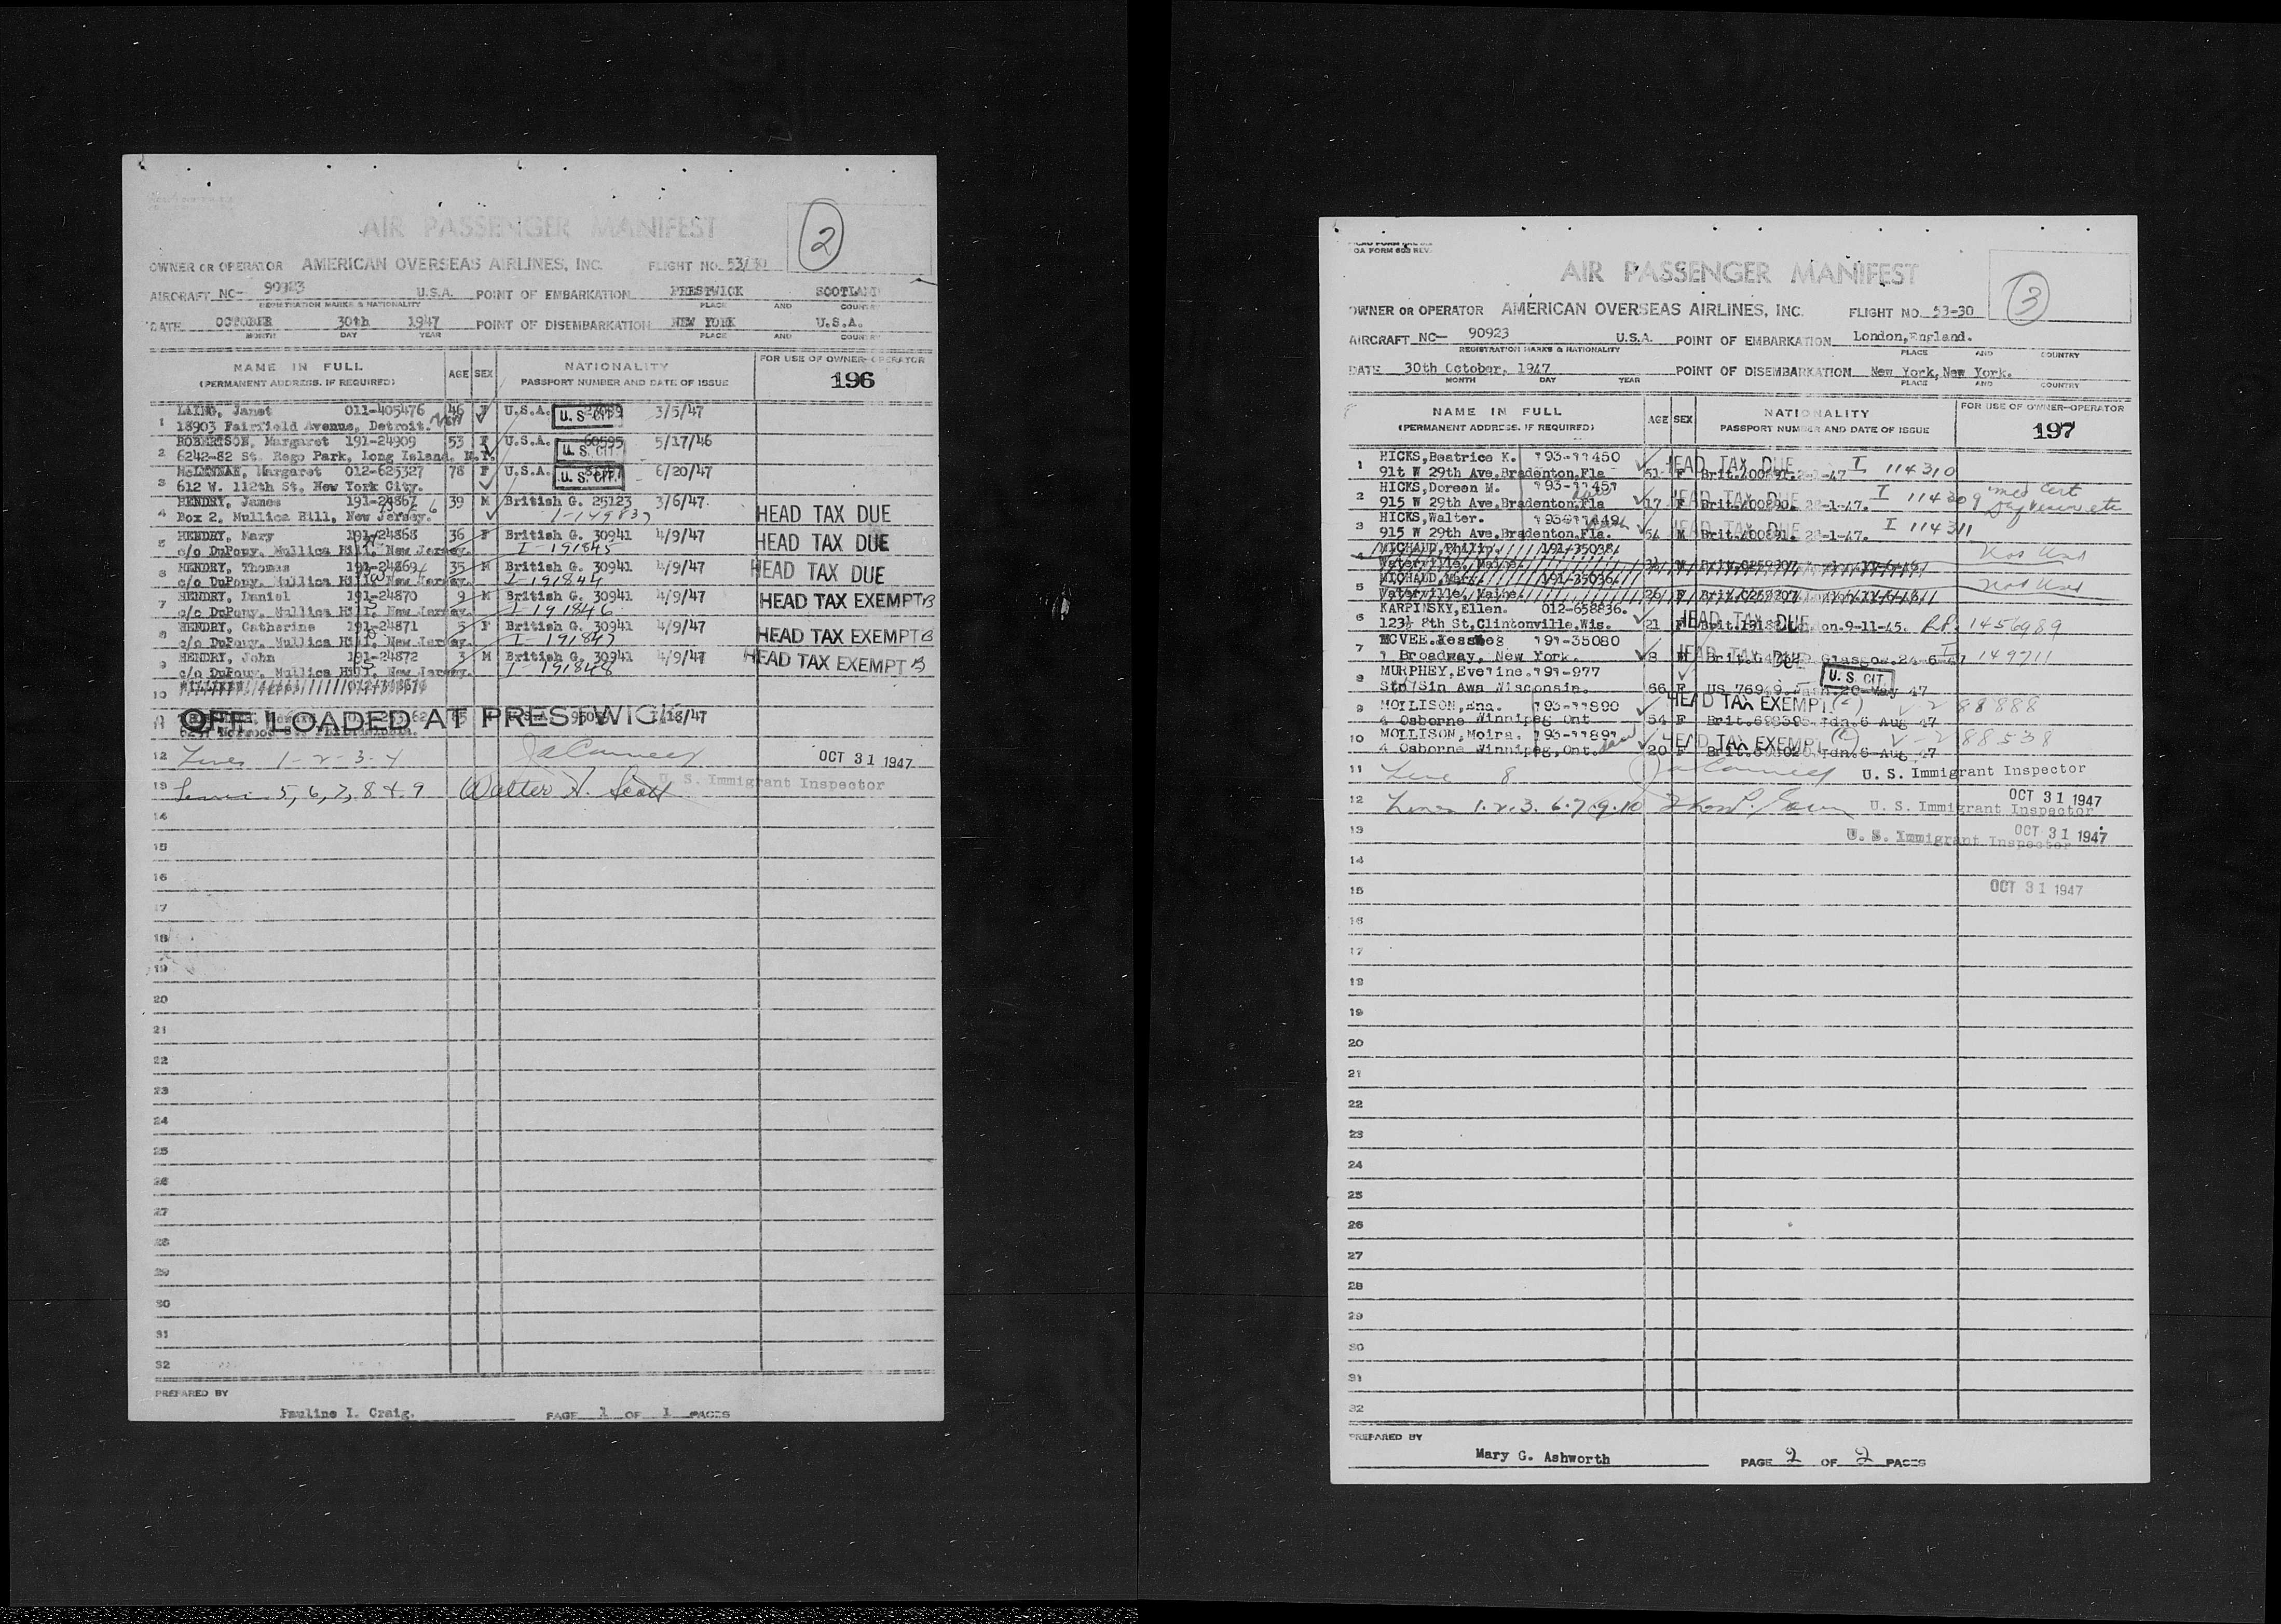 AIR PASSENGER MANIFEST
2
OWNER OR OPERATOR AMERICAN OVERSEAS AIRLINES, INC. FLIGHT NO. 53/30
AIRCRAFT NC- 90923 U.S.A. POINT OF EMBARKATION PRESTWICK SCOTLAND
REGISTRATION MARKS & NATIONALITY PLACE AND COUNTRY
DATE OCTOBER 30th 1947 POINT OF DISEMBARKATION NEW YORK U.S.A.
MONTH DAY YEAR PLACE AND COUNTRY
NAME IN FULL AGE SEX NATIONALITY FOR USE OF OWNER-OPERATOR
(PERMANENT ADDRESS. IF REQUIRED) PASSPORT NUMBER AND DATE OF ISSUE 196
1 LAING, Janet 011-405476 46 F U.S.A. U. S. CIT. 3/5/47
18903 Fairfield Avenue, Detroit.
2 ROBERTSON, Margaret 191-24909 53 F U.S.A. 60595 5/17/46
6242-82 St. Rego Park, Long Island, N.Y. U. S. CIT.
3 McLENNAN, Margaret 012-625327 78 F U.S.A. 6/20/47
612 W. 112th St. New York City. U. S. CIT.
4 HENDRY, James 191-24867 39 M British G. 25123 3/6/47
Box 2, Mullica Hill, New Jersey. HEAD TAX DUE
5 HENDRY, Mary 191-24868 36 F British G. 30941 4/9/47
c/o DuPony, Mullica Hill, New Jersey. I-191845 HEAD TAX DUE
6 HENDRY, Thomas 191-24869 35 M British G. 30941 4/9/47
c/o DuPony, Mullica Hill, New Jersey. I-191844 HEAD TAX DUE
7 HENDRY, Daniel 191-24870 9 M British G. 30941 4/9/47
c/o DuPony, Mullica Hill, New Jersey. I-191846 HEAD TAX EXEMPT B
8 HENDRY, Catherine 191-24871 5 F British G. 30941 4/9/47
c/o DuPony, Mullica Hill, New Jersey. I-191847 HEAD TAX EXEMPT B
9 HENDRY, John 191-24872 M British G. 30941 4/9/47
c/o DuPony, Mullica Hill, New Jersey. I-191848 HEAD TAX EXEMPT B
10
11 OFF LOADED AT PRESTWICK
12 Lines 1-2-3-4 OCT 31 1947
13 Lines 5, 6, 7, 8 & 9 Walter A. Scott U. S. Immigrant Inspector
14
15
16
17
18
19
20
21
22
23
24
25
26
27
28
29
30
31
32
PREPARED BY
Pauline I. Craig. PAGE 1 OF 1 PAGES
OA FORM 603 REV.
AIR PASSENGER MANIFEST
3
OWNER OR OPERATOR AMERICAN OVERSEAS AIRLINES, INC. FLIGHT NO. 53-30
AIRCRAFT NC- 90923 U.S.A. POINT OF EMBARKATION London, England.
REGISTRATION MARKS & NATIONALITY PLACE AND COUNTRY
DATE 30th October, 1947 POINT OF DISEMBARKATION New York, New York.
MONTH DAY YEAR PLACE AND COUNTRY
NAME IN FULL AGE SEX NATIONALITY FOR USE OF OWNER-OPERATOR
(PERMANENT ADDRESS. IF REQUIRED) PASSPORT NUMBER AND DATE OF ISSUE 197
1 HICKS, Beatrice K. 193-11450 HEAD TAX DUE I 114310
91t W 29th Ave. Bradenton, Fla 51 F Brit.
2 HICKS, Doreen M. 193-11451 HEAD TAX DUE I 114309 med cert
915 W 29th Ave. Bradenton, Fla 17 F Brit.
3 HICKS, Walter. HEAD TAX DUE I 114311
915 W 29th Ave. Bradenton, Fla. 54 M Brit.
4 MICHAUD, Philip. 191-35038 Not Used
Waterville, Maine.
5 MICHAUD, 191-35036 Not Used
Waterville, Maine. 26 F
6 KARPINSKY, Ellen. 012-658836. HEAD TAX DUE
123½ 8th St, Clintonville, Wis. 21 F Brit. 9-11-45. R.P. 1456989
7 MCVEE. 191-35080 HEAD TAX DUE I 149711
1 Broadway, New York. 8 Brit. Glasgow.
8 MURPHEY, Eveline. 191-977 U. S. CIT.
Wisconsin. 66 F US 76949. 20-May 47
9 MOLLISON, Ena. 193-11890 HEAD TAX EXEMPT V-2 88888
4 Osborne Winnipeg Ont 54 F Brit. 6 Aug 47
10 MOLLISON, Moira. 193-11891 HEAD TAX EXEMPT V-2 88538
4 Osborne Winnipeg, Ont. 20 F Brit. 6-Aug 47
11 Line 8 U. S. Immigrant Inspector
12 Lines 1.2.3.6.7.9.10 OCT 31 1947
U. S. Immigrant Inspector
13 OCT 31 1947
U. S. Immigrant Inspector
14
15 OCT 31 1947
16
17
18
19
20
21
22
23
24
25
26
27
28
29
30
31
32
PREPARED BY
Mary G. Ashworth PAGE 2 OF 2 PAGES